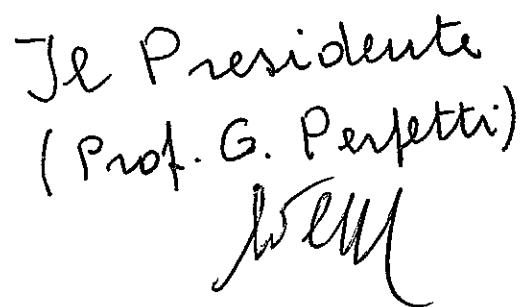 Il Presidente
(Prof. G. Perfetti)